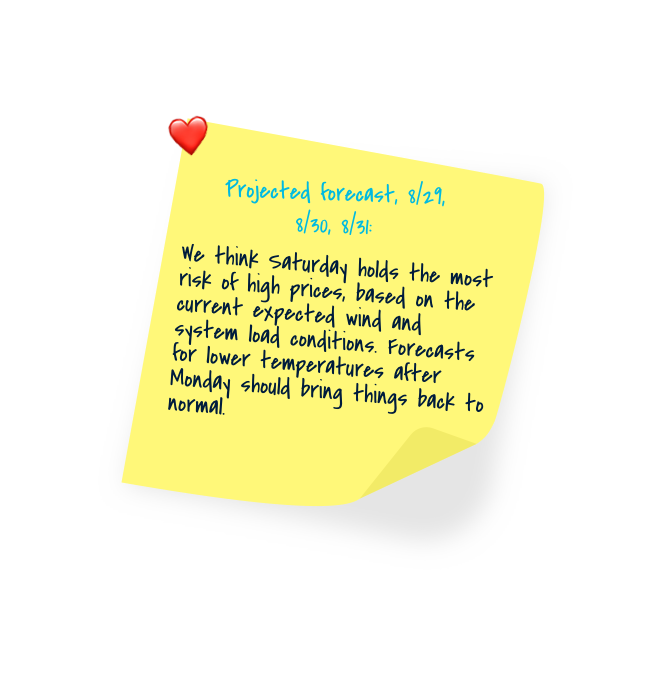 Projected forecast, 8/29,
8/30, 8/31:
We think Saturday holds the most
risk of high prices, based on the
current expected wind and
system load conditions. Forecasts
for lower temperatures after
Monday should bring things back to
normal.